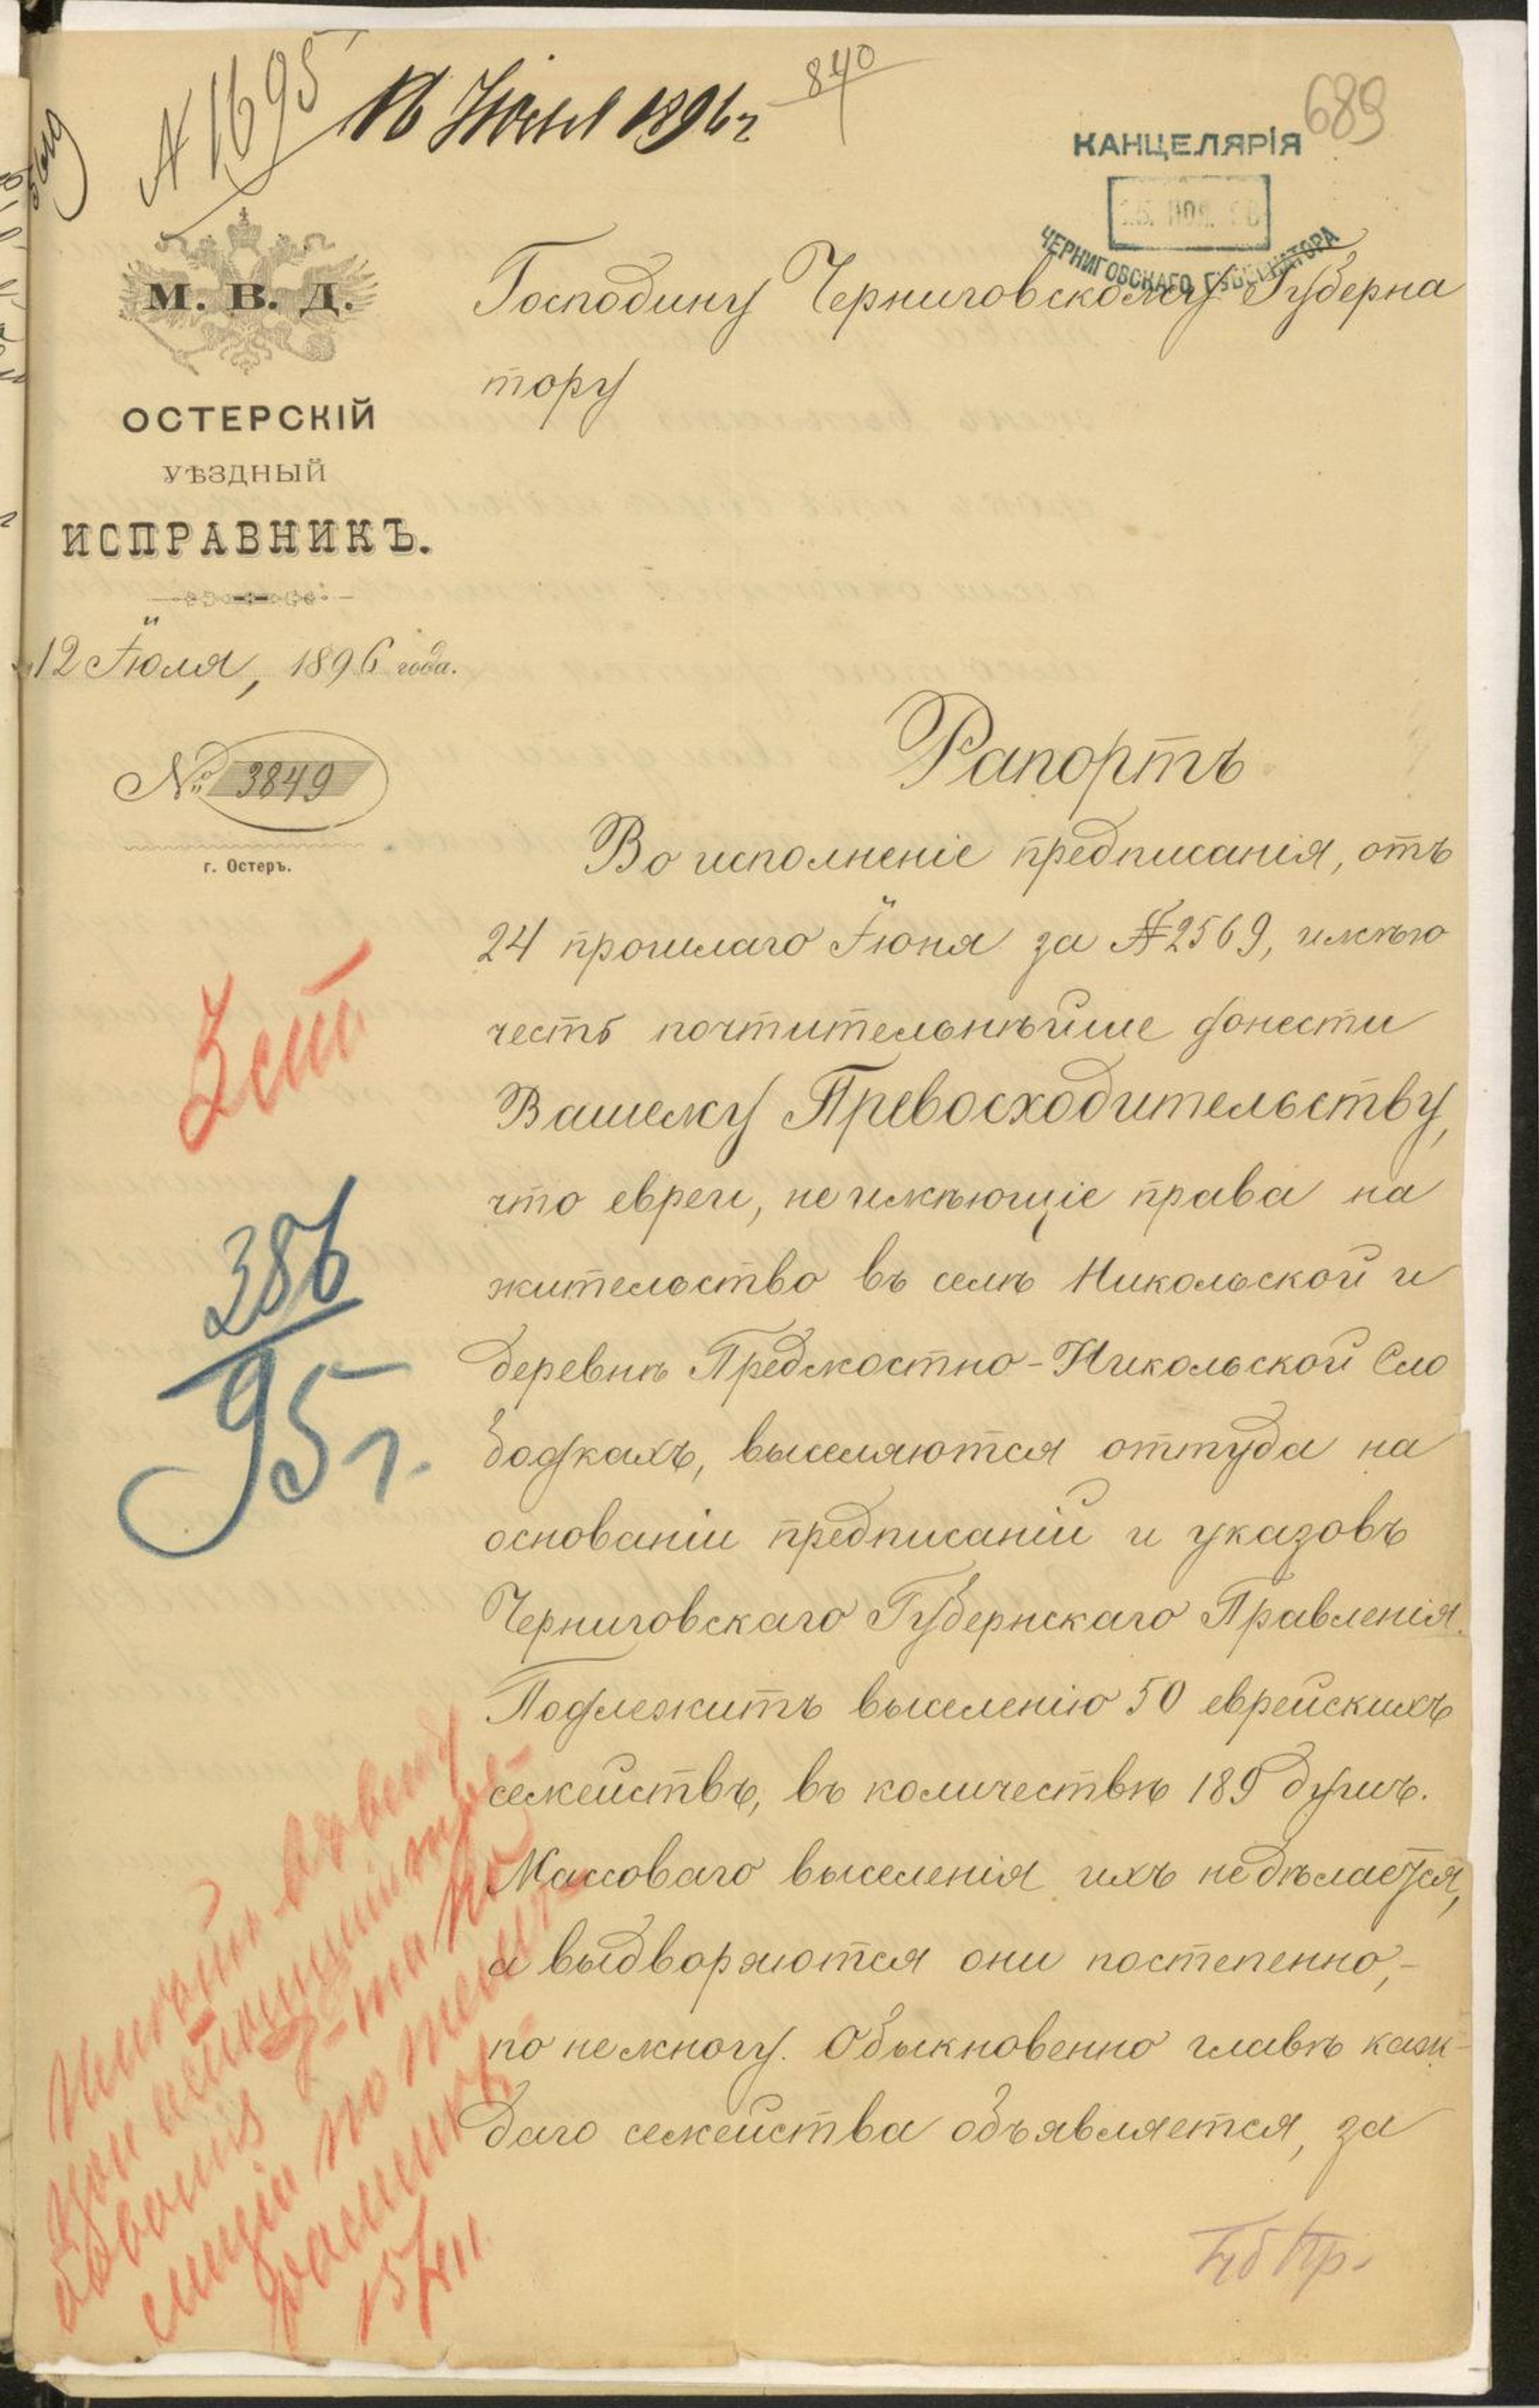 № 1695
16 Июля 1896 г
840
689
КАНЦЕЛЯРІЯ
ЧЕРНИГОВСКАГО ГУБЕРНАТОРА
М. В. Д.
ОСТЕРСКІЙ
УѢЗДНЫЙ
ИСПРАВНИКЪ.
12 Іюля, 1896 года.
№ 3849
г. Остеръ.
Господину Черниговскому Губерна
тору
Рапортъ
Во исполненіе предписанія, отъ
24 прошлаго Іюня за № 2569, имѣю
честь почтительнѣйше донести
Вашему Превосходительству,
что евреи, не имѣющіе права на
жительство въ селѣ Никольской и
деревнѣ Предмостно-Никольской Сло
бодкахъ, выселяются оттуда на
основаніи предписаній и указовъ
Черниговскаго Губернскаго Правленія.
Подлежитъ выселенію 50 еврейскихъ
семействъ, въ количествѣ 189 душъ.
Массоваго выселенія ихъ не дѣлается,
а выдворяются они постепенно,-
по немногу. Обыкновенно главѣ каж-
даго семейства объявляется, за
2 ст
386
95 г.
15/VII